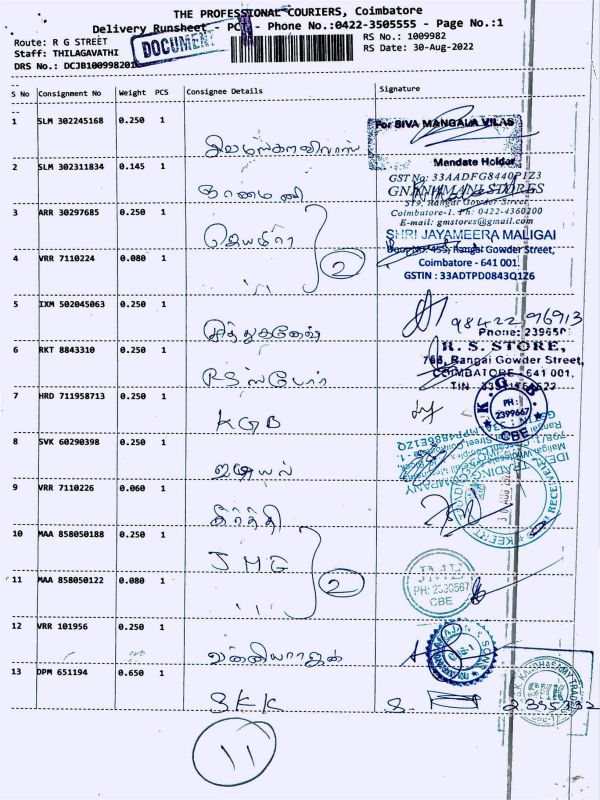 THE PROFESSIONAL COURIERS, Coimbatore
Delivery Runsheet - PCT - Phone No.:0422-3505555 - Page No.:1
Route: R G STREET
RS No.: 1009982
Staff: THILAGAVATHI
RS Date: 30-Aug-2022
DOCUMENT
S No Consignment No Weight PCS Consignee Details Signature
1 SLM 302245168 0.250 1
For SIVA MANGALA VILAS
சிவமங்களவிலாஸ்
Mandate Holder
2 SLM 302311834 0.145 1
GST No: 33AADFG8440P1Z3
GNANAMANI STORES
ஞானமணி
519, Rangai Gowder Street
Coimbatore-1. Ph: 0422-4360200
E-mail: gmstores@gmail.com
3 ARR 30297685 0.250 1
SHRI JAYAMEERA MALIGAI
ஜெயமீரா
Door No: 455, Rangai Gowder Street,
4 VRR 7110224 0.080 1
2
Coimbatore - 641 001.
GSTIN : 33ADTPD0843Q1Z6
5 IXM 502045063 0.250 1
98422 96913
Phone: 239650
R. S. STORE,
6 RKT 8843310 0.250 1
768, Rangai Gowder Street,
COIMBATORE - 641 001,
RS ஸ்டோர்
7 HRD 711958713 0.250 1
K. G. B.
PH: 2399667
CBE
KGB
8 SVK 60290398 0.250 1
இதயல்
9 VRR 7110226 0.060 1
RECEIVED
கீர்த்தி
10 MAA 858050188 0.250 1
JMG
JME
PH: 2390567
CBE
11 MAA 858050122 0.080 1
2
12 VRR 101956 0.250 1
& SONS
13 DPM 651194 0.650 1
S.K. KANDHASAMY TRAD
SKK
2395332
11